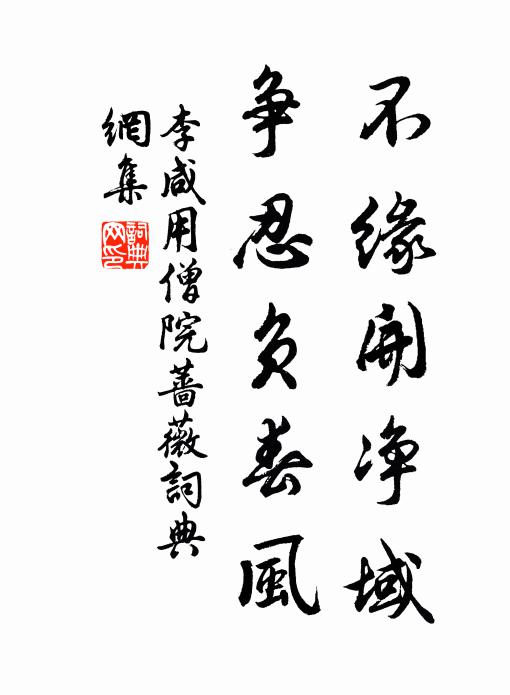 不緣開淨域
争忍負春風
李咸用僧院薔薇詞典
網集
詞典网印